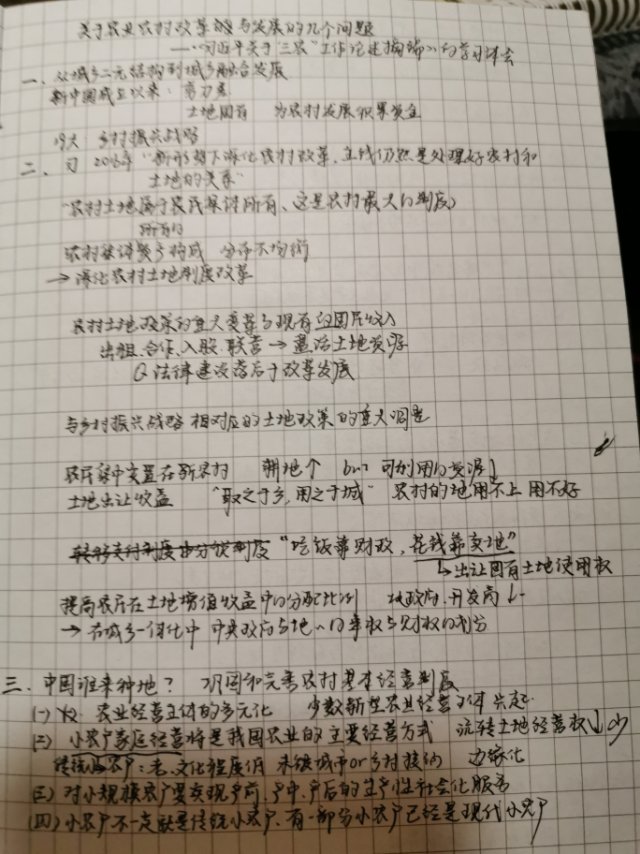 关于农业农村改革与发展的几个问题
——《习近平关于"三农"工作论述摘编》的学习体会
一、从城乡二元结构到城乡融合发展
新中国成立以来：剪刀差
土地国有 为农村发展积累资金
19大 乡村振兴战略
二、习 2016年 "新形势下深化农村改革，主线仍然是处理好农村和
土地的关系"
"农村土地属于农民集体所有，这是农村最大的制度"
所有的
农村集体 构成 分布不均衡
→ 深化农村土地制度改革
农村土地政策的重大变革与现有的国民收入
出租、合作、入股、联营 → 盘活土地资源
Q 法律建设落后于改革发展
与乡村振兴战略相对应的土地政策的重大调整
农民集中安置在新农村 耕地↑ but 可利用的资源↓
土地出让收益 "取之于乡，用之于城" 农村的地用不上 用不好
"吃饭靠财政，花钱靠卖地"
↳出让国有土地使用权
提高农民在土地增值收益中的分配比例 地政府、开发商↓
→ 在城乡一体化中 中央政府与地~的事权与财权的划分
三、中国谁来种地？ 巩固和完善农村基本经营制度
(一) 农业经营主体的多元化 少数新型农业经营主体 兴起
(二) 小农户家庭经营将是我国农业的主要经营方式 流转土地经营权↓少
传统小农户：老、文化程度低 未被城市or乡村接纳 边缘化
(三) 对小规模农户要实现产前、产中、产后的生产性社会化服务
(四) 小农户不一定就是传统小农户、有一部分小农户已经是现代小农户